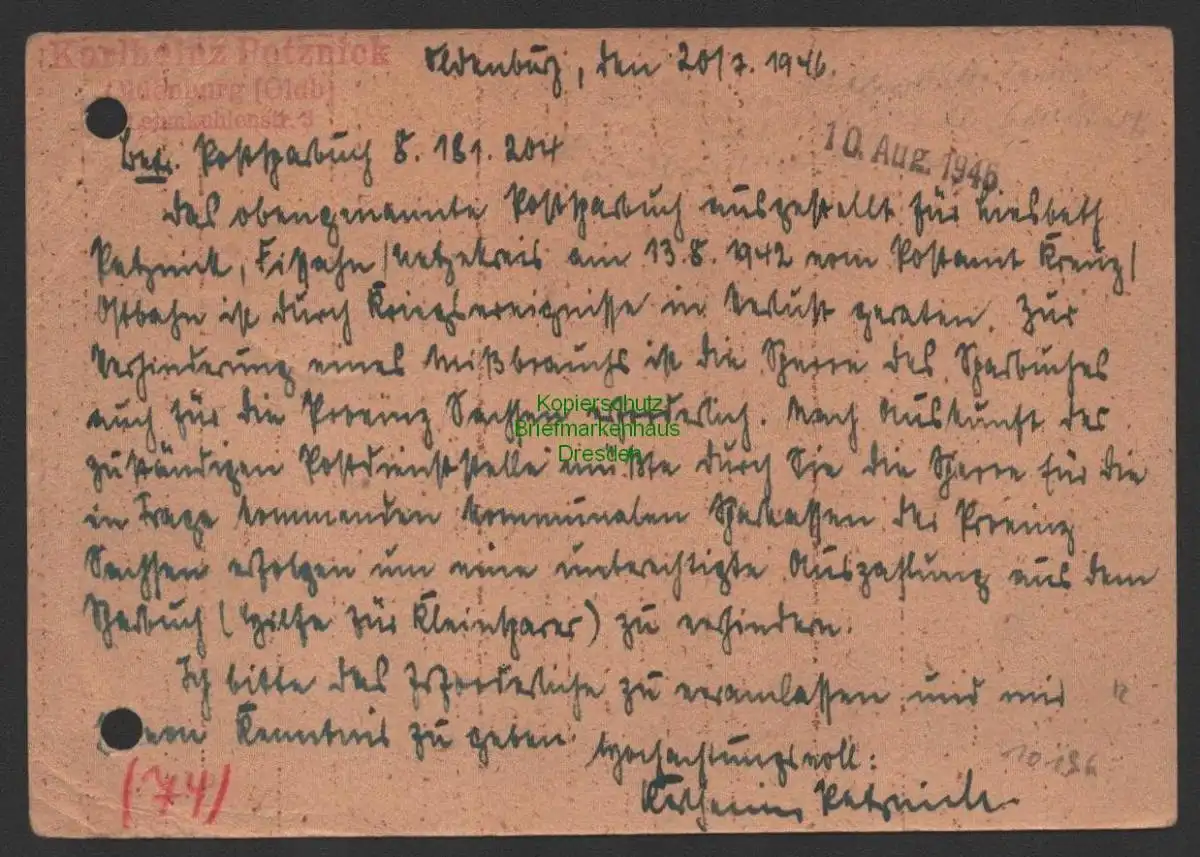 Karlheinz Petznick
Oldenburg [Oldb]
Lehmkuhlenstr. 3
Oldenburg, den 20/7. 1946.
10. Aug. 1946
Betr. Postsparbuch 8. 181. 204
Das obengenannte Postsparbuch ausgestellt für Liesbeth
Petznick, Filehne/Netzekreis am 13.8.1942 vom Postamt Kreuz/
Ostbahn ist durch Kriegsereignisse in Verlust geraten. Zur
Verhinderung eines Mißbrauchs ist die Sperre des Sparbuches
auch für die Provinz Sachsen erforderlich. Nach Auskunft der
zuständigen Postdienststelle müßte durch Sie die Sperre für die
in Frage kommenden kommunalen Sparkassen der Provinz
Sachsen erfolgen um eine unberechtigte Auszahlung aus dem
Sparbuch (Hilfe für Kleinsparer) zu verhindern.
Ich bitte das Erforderliche zu veranlassen und mir
Kenntnis zu geben.
Hochachtungsvoll:
Karlheinz Petznick
(74)
Kopierschutz
Briefmarkenhaus
Dresden